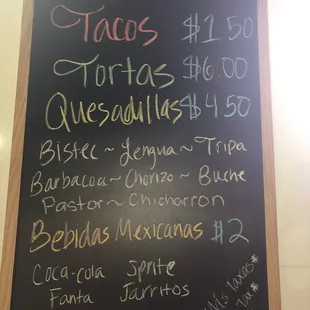 Tacos $1.50
Tortas $6.00
Quesadillas $4.50
Bistec ~ Lengua ~ Tripa
Barbacoa ~ Chorizo ~ Buche
Pastor ~ Chicharron
Bebidas Mexicanas $2
Coca-cola Sprite
Fanta Jarritos